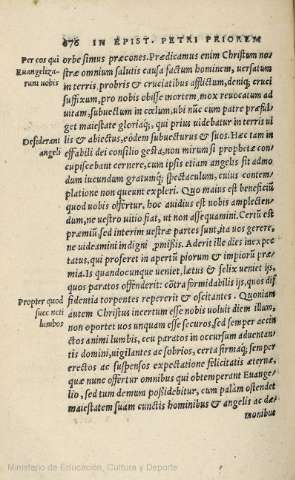 676 IN EPIST. PETRI PRIOREM
Per eos qui
Euangeliza-
runt nobis
orbe simus præcones. Prædicamus enim Christum no-
stræ omnium salutis causa factum hominem, uersatum
in terris, probris & cruciatibus afflictum, deniq; cruci
suffixum, pro nobis obisse mortem, mox reuocatum ad
uitam, subuectum in cœlum, ubi nūc cum patre præfi-
det maiestate gloriaq;, qui prius uidebatur in terris ui
lis & abiectus, eódem subuecturus & suos. Hac tam in
Desiderant
angeli
effabili dei consilio gesta, non mirum si prophetæ con-
cupiscebant cernere, cum ipsis etiam angelis sit admo
dum iucundum gratumq; spectaculum, cuius contem-
platione non queunt expleri. Quo maius est beneficiū
quod uobis offertur, hoc auidius est uobis amplecten-
dum, ne uestro uitio fiat, ut non assequamini. Certū est
præmiū, sed interim uestræ partes sunt, ita uos gerere,
ne uideamini indigni ꝓmissis. Aderit ille dies inexpe
ctatus, qui proferet in apertū piorum & impiorū præ
mia. Is quandocunque ueniet, lætus & felix ueniet ijs,
quos paratos offenderit: cōtra formidabilis ijs, quos dif
Propter quod
succincti
lumbos
fidentia torpentes repererit & oscitantes. Quoniam
autem Christus incertum esse nobis uoluit diem illum,
non oportet uos unquam esse securos, sed semper accin
ctos animi lumbis, ceu paratos in occursum aduentan-
tis domini, uigilantes ac sobrios, certa firmaq;, semper
erectos ac suspensos expectatione felicitatis æternæ,
quæ nunc offertur omnibus qui obtemperant Euange-
lio, sed tum demum posidebitur, cum palàm ostendet
maiestatem suam cunctis hominibus & angelis ac dæ-
monibus
Ministerio de Educación, Cultura y Deporte